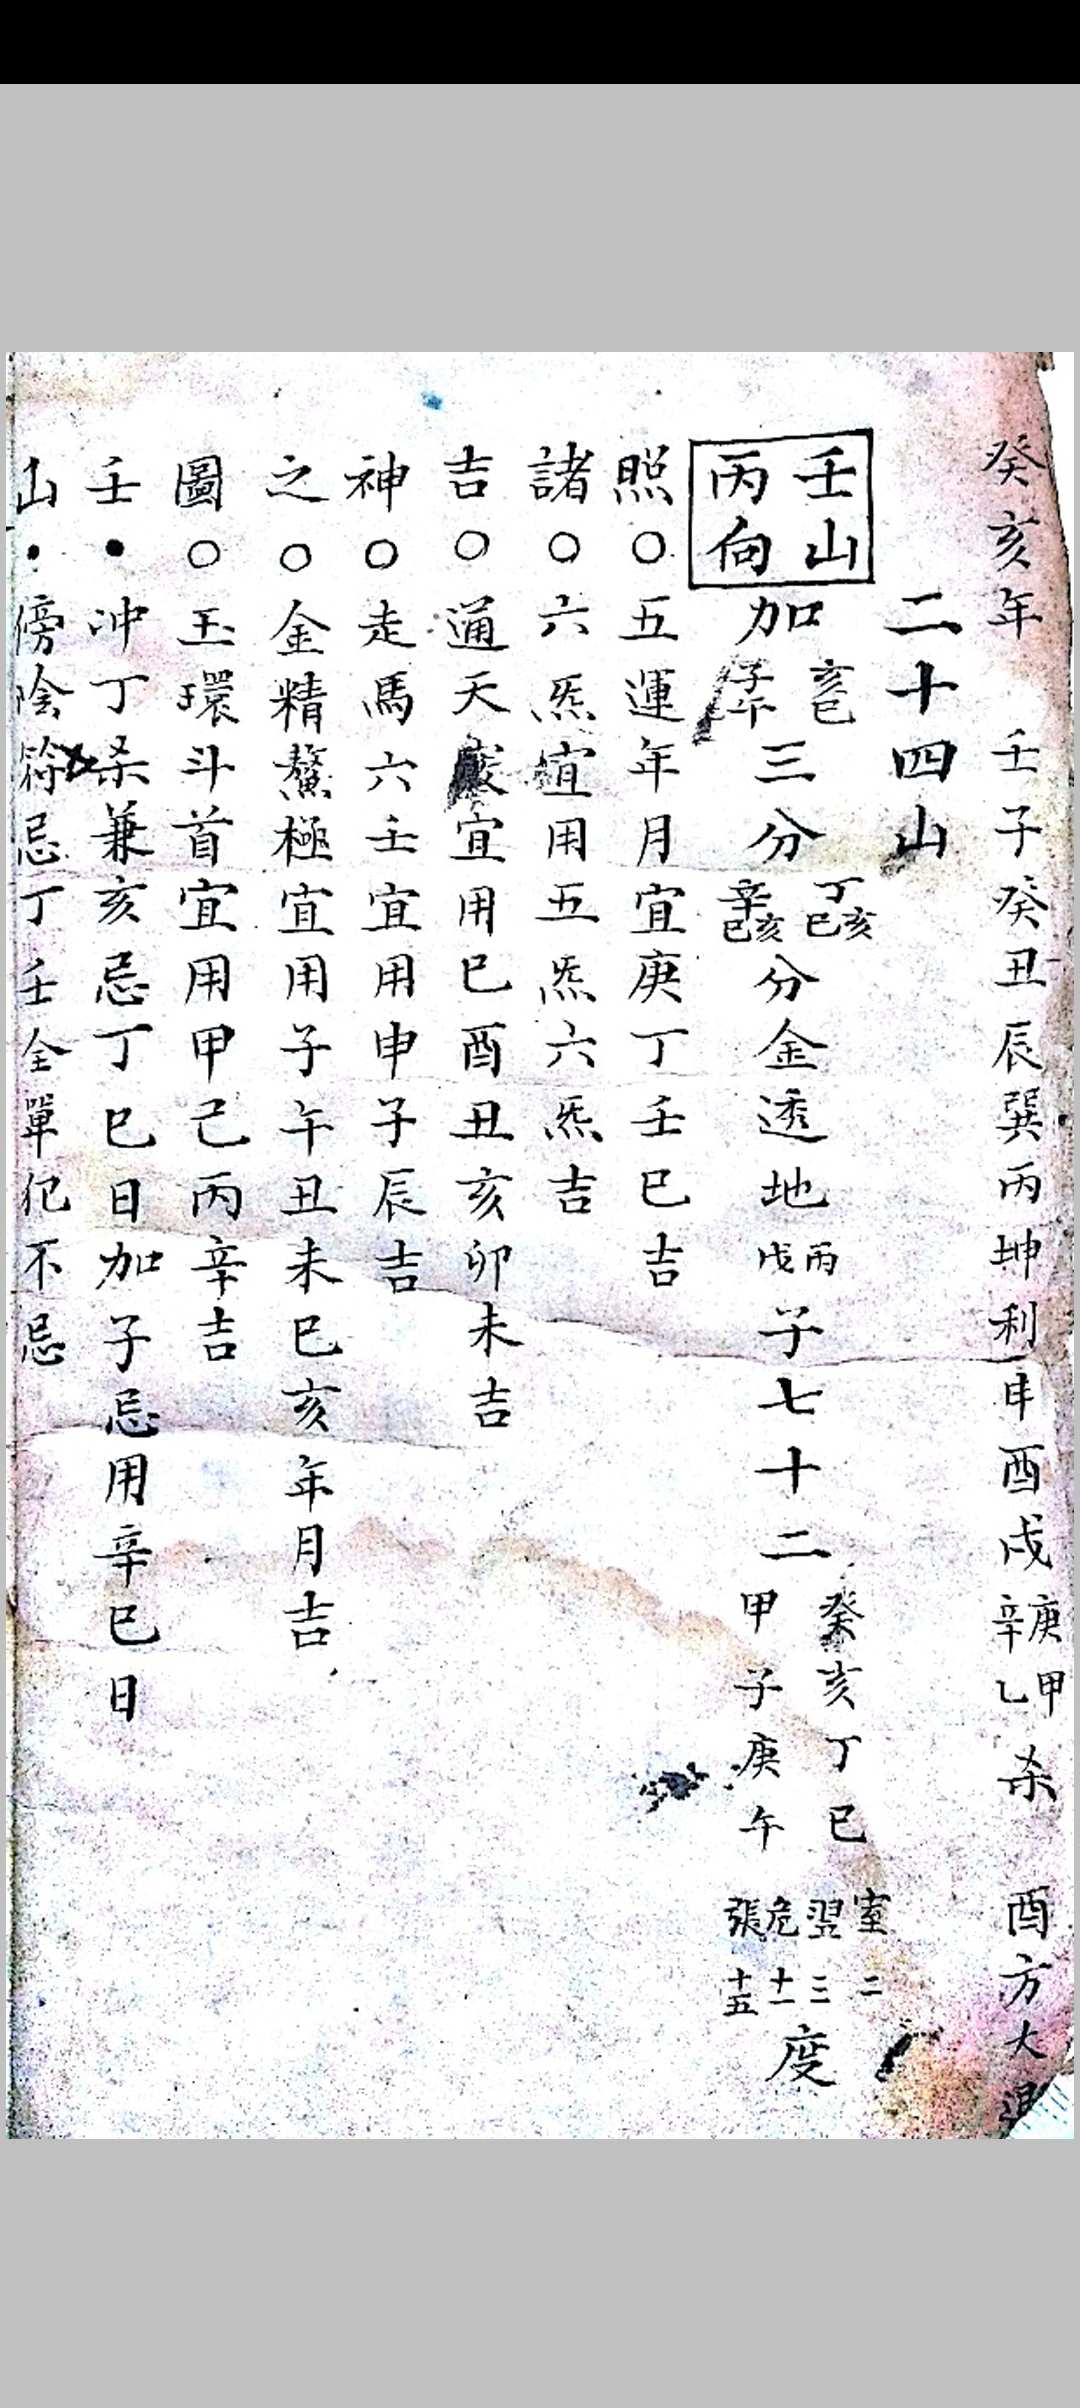 癸亥年　壬子癸丑辰巽丙坤利申酉戌庚辛甲乙杀　酉方大退
二十四山
壬山丙向　加亥巳子午三分丁亥巳亥辛亥巳亥分金透地丙戊子七十二癸亥丁巳甲子庚午室二翌三危十一張十五度
照○五運年月宜庚丁壬巳吉
諸○六炁宜用五炁六炁吉
吉○通天竅宜用巳酉丑亥卯未吉
神○走馬六壬宜用申子辰吉
之○金精鰲極宜用子午丑未巳亥年月吉
圖○玉環斗首宜用甲己丙辛吉
壬•冲丁杀兼亥忌丁巳日加子忌用辛巳日
山•傍陰符忌丁壬全單犯不忌